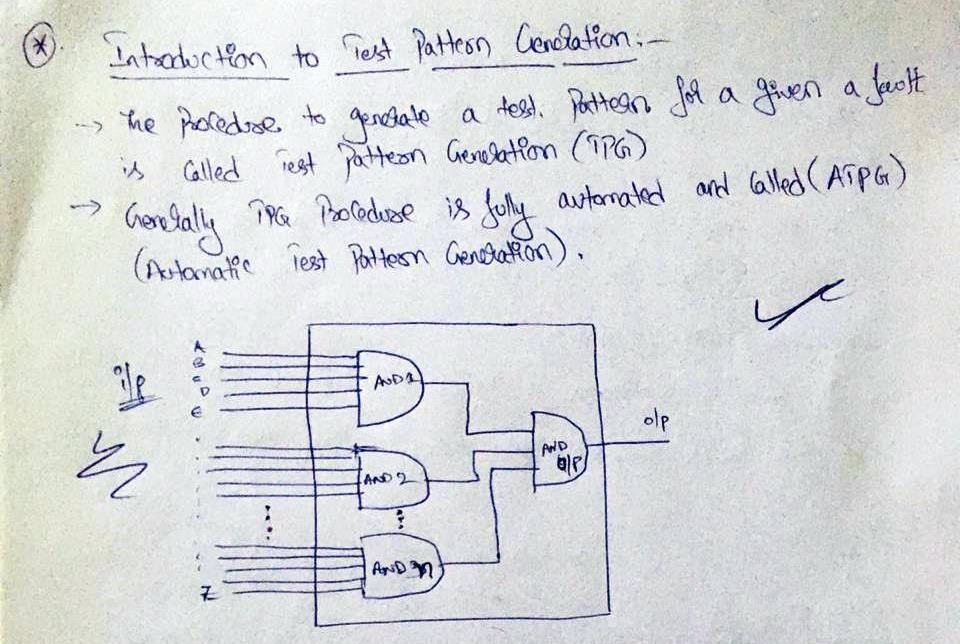 Introduction to Test Pattern Generation :-
→ The Procedure to generate a test. Pattern for a given a fault
is Called Test Pattern Generation (TPG)
→ Generally TPG Procedure is fully automated and Called (ATPG)
(Automatic Test Pattern Generation).
i/p
A
B
C
D
E
AND 1
AND 2
AND n
Z
AND
O/P
o/p